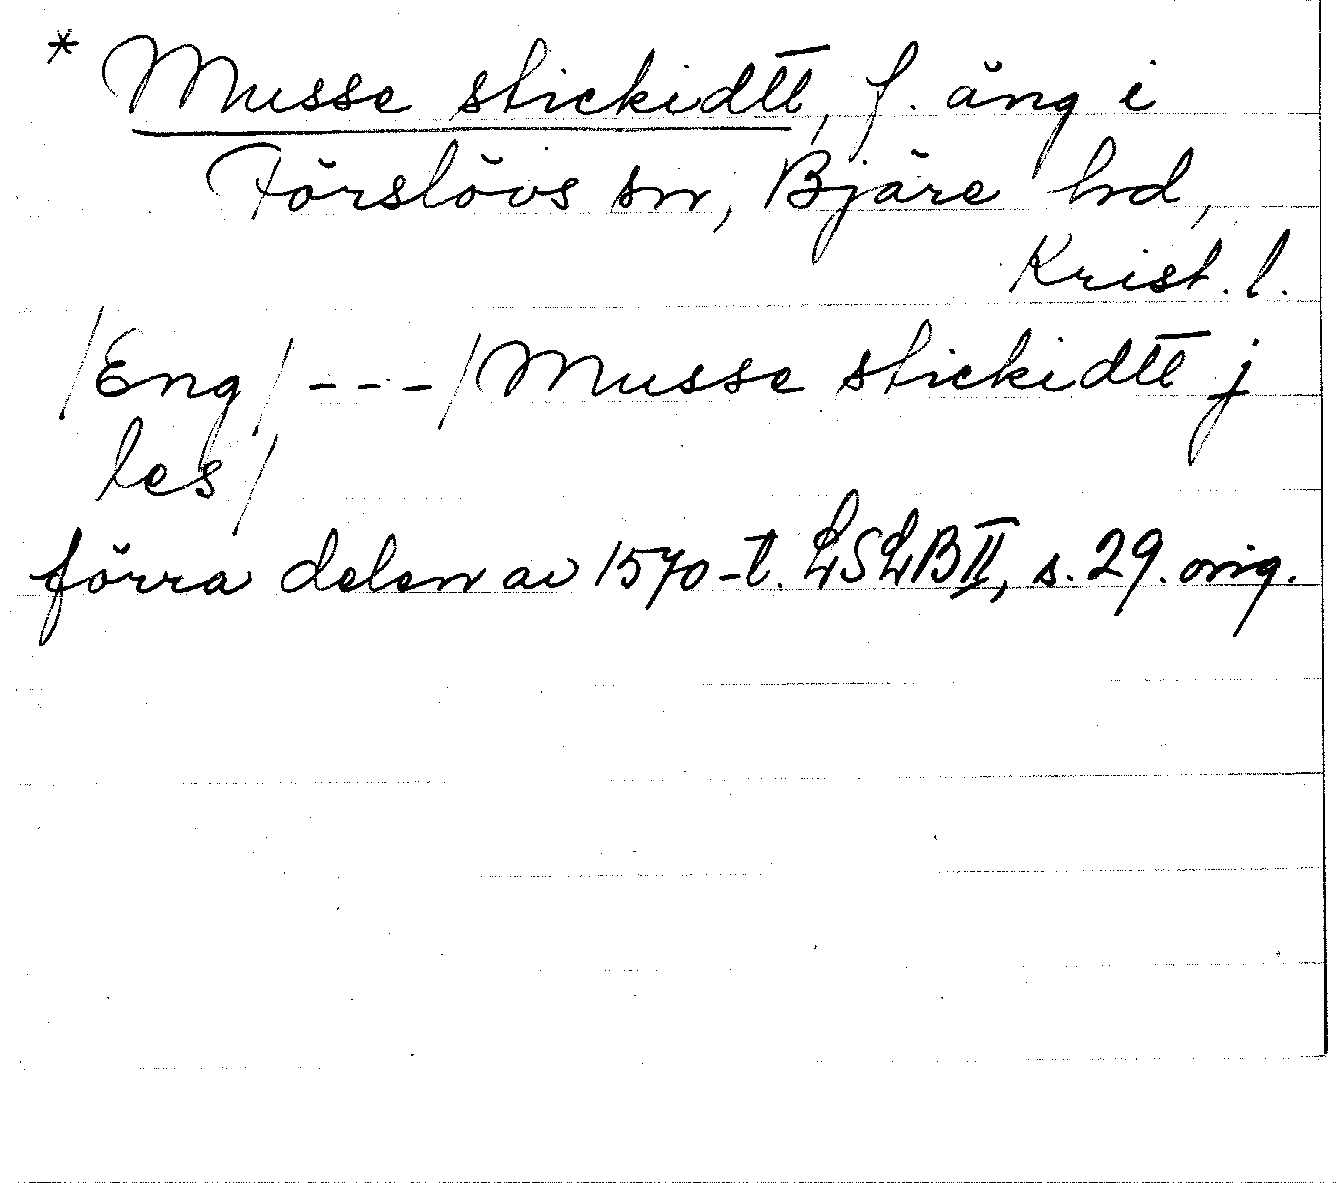 * Musse stickidtt, f. äng i
Förslövs sn, Bjäre hd,
Krist. l.
/Eng/ --- /Musse stickidtt j
les/
förra delen av 1570-t. LSLB II, s. 29. orig.